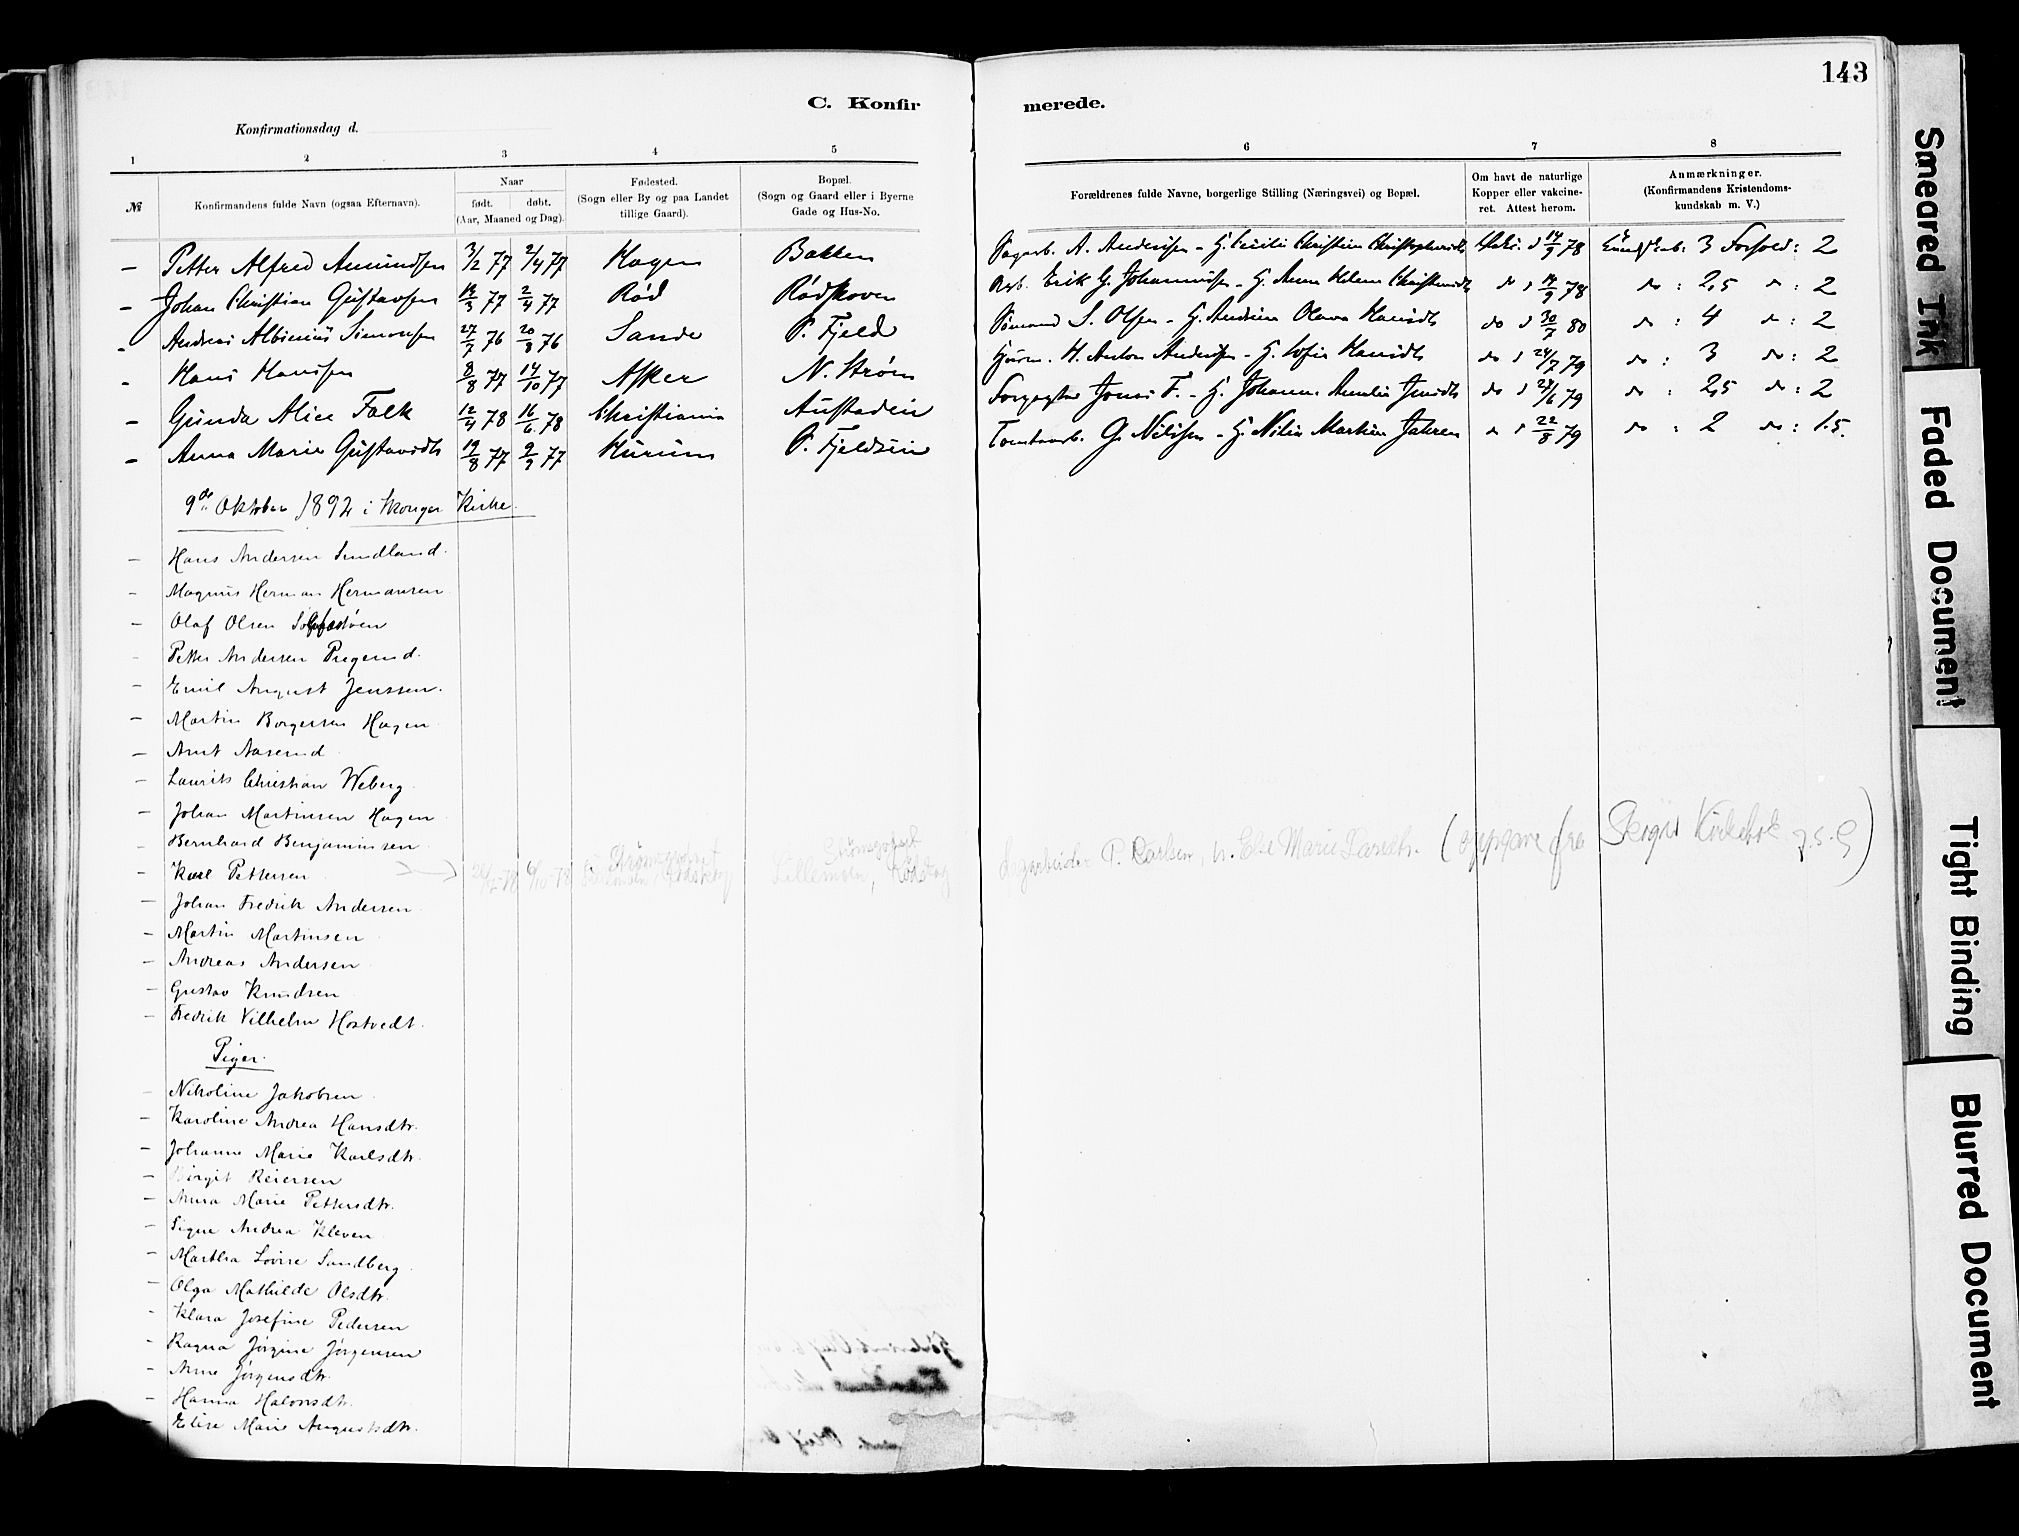 143
C. Konfir merede.
Konfirmationsdag d.
1 2 3 4 5 6 7 8
№ Konfirmandens fulde Navn (ogsaa Efternavn). Naar født. døbt. (Aar, Maaned og Dag). Fødested. (Sogn eller By og paa Landet tillige Gaard). Bopæl. (Sogn og Gaard eller i Byerne Gade og Hus-No. Forældrenes fulde Navne, borgerlige Stilling (Næringsvei) og Bopæl. Om havt de naturlige Kopper eller vakcineret. Attest herom. Anmærkninger. (Konfirmandens Kristendomskundskab m. V.)
– Petter Alfred Amundsen 3/2 77 2/4 77 Hagen Bakken A. Andersen - H. Christine 14/9 78 Kundskab: 3 Forhold: 2
– Johan Christian Gustavsen 18/3 77 2/4 77 Rød Rødskoven Arb. Erik G. Johannesen - H. Anna Helene do d 14/9 78 do : 2,5 do : 2
– Andreas Albinius Simonsen 27/7 76 20/8 76 Sande P. Fjeld Sømand S. Olsen - H. Andrine Olava Hansdtr do d 30/7 80 do : 4 do : 2
– Hans Hansen 8/8 77 14/10 77 Asker N. Strøm H. Anton Andersen - H. Sofie Hansdtr do d 24/7 79 do : 3 do : 2
– Gunda Alice Falk 12/4 78 16/6 78 Christiania Austadein Jonas F. - H. Johanne Amalie do d 24/6 79 do : 2,5 do : 2
– Anna Marie Gustavsdtr 19/8 77 9/9 77 Hurum P. Fjeldsein Tomtearb. G. Nilssen - H. Nilia Martine Jahren d 22/8 79 do : 2 do : 1.5.
9de Oktober 1892 i Skoger Kirke.
– Hans Andersen Sundland.
– Magnus Herman Hermansen
– Olaf Olsen
– Petter Andersen
– Emil August Jenssen.
– Martin Borgersen Hagen
– Arnt Aaserud
– Laurits Christian Weberg
– Johan Martinsen Hagen
– Bernhard Benjaminsen
– Karl Pettersen Strømsgodset Strømsgodset Lillemoen, P. Karlsen, Else Marie (oppgave fra Skoger Kirkebok J.S.G)
– Johan Fredrik Andersen
– Martin Martinsen
– Andreas Andersen
– Gustav Knudsen
– Fredrik Vilhelm Hostvedt.
Piger.
– Nikoline Jakobsen
– Karoline Andrea Hansdtr.
– Johanne Marie Karlsdtr.
– Birgit Reiersen
– Anna Marie Pettersdtr.
– Signe Andrea Kleven
– Martha Lovise Sandberg
– Olga Mathilde Olsdtr.
– Klara Josefine Pedersen
– Ragna Jørgine Jørgensen
– Anne Jørgensdtr.
– Hanna Halvorsdtr.
– Elise Marie Augustsdtr.
Smeared Ink
Faded Document
Tight Binding
Blurred Document